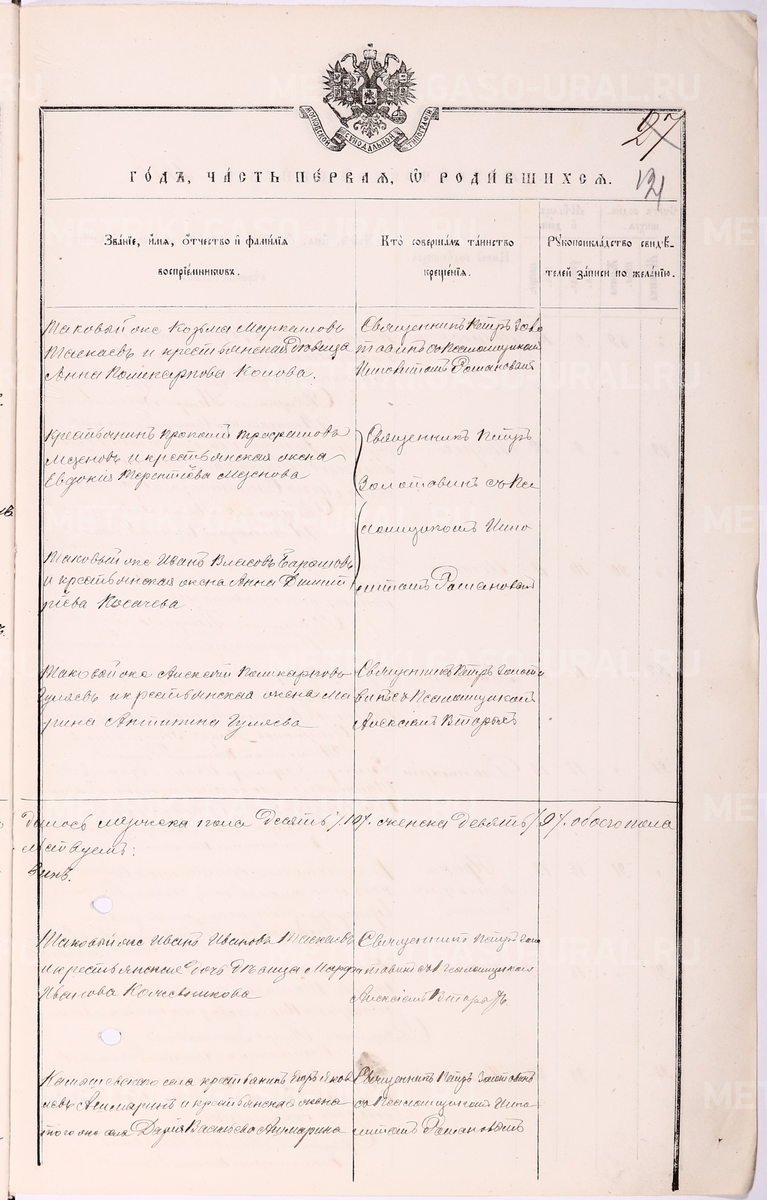 МОСКОВСКОЙ СѴНОДАЛЬНОЙ ТИПОГРАФІИ
27
121
ГОДЪ, ЧАСТЬ ПЕРВАЯ, Ѡ РОДИВШИХСЯ.
Званіе, имя, отчество и фамилія воспріемниковъ.
Кто совершалъ таинство крещенія.
Рукоприкладство свидѣтелей записи по желанію.
Таковый же Козьма Маркаловъ
Таскаевъ и крестьянская дѣвица
Анна Поликарпова Копова.
Священникъ Петръ Золо
тавинъ съ Псаломщикомъ
Ипполитомъ Романовымъ
Крестьянинъ Прокопій Трофимовъ
Мезеновъ и крестьянская жена
Евдокія Терентіева Мезенова
Священникъ Петръ
Золотавинъ съ Пса
ломщикомъ Иппо
литомъ Романовымъ
Таковый же Иванъ Власовъ
и крестьянская жена Анна Димит
ріева Косачева.
Таковый же Алексій Поликарповъ
Гуляевъ и крестьянская жена Ма
рина Антипина Гуляева
Священникъ Петръ Золота
винъ съ Псаломщикомъ
Алексіемъ Вторыхъ
дилось мужеска пола десять /10/. женска девять /9/. обоего пола
Таковый же Иванъ Ивановъ Таскаевъ
и крестьянская дочь дѣвица Марфа
Иванова Кожевникова
Священникъ Петръ Золо
тавинъ съ Псаломщикомъ
Алексіемъ Вторыхъ
Камышевскаго села крестьянинъ Егоръ Яков
левъ Ашмаринъ и крестьянская жена
того же села Дарія Васильева Ашмарина
Священникъ Петръ Золотавинъ
съ Псаломщикомъ Иппо
литомъ Романовымъ